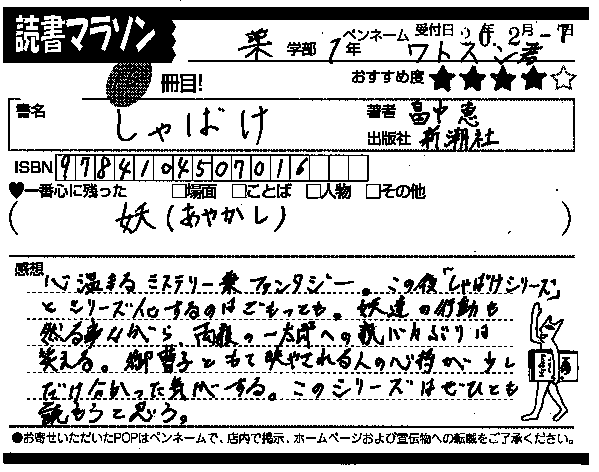 読書マラソン
薬 学部 1年 ペンネーム 受付日 20年 2月-7日
ワトスン君
冊目!
おすすめ度 ★★★★☆
書名 しゃばけ
著者 畠中恵
出版社 新潮社
ISBN 9784104507016
♥一番心に残った □場面 □ことば □人物 □その他
( 妖(あやかし) )
感想
心温まるミステリー兼ファンタジー。この後「しゃばけシリーズ」
とシリーズ化するのはごもっとも。妖達の行動も
然る事ながら 両親の一太郎への親バカぶりは
笑える。御曹子ともて映やされる人の心持が少し
だけ分かった気がする。このシリーズはぜひとも
読もうと思う。
●お寄せいただいたPOPはペンネームで、店内で掲示、ホームページおよび宣伝物への転載をご了承ください。